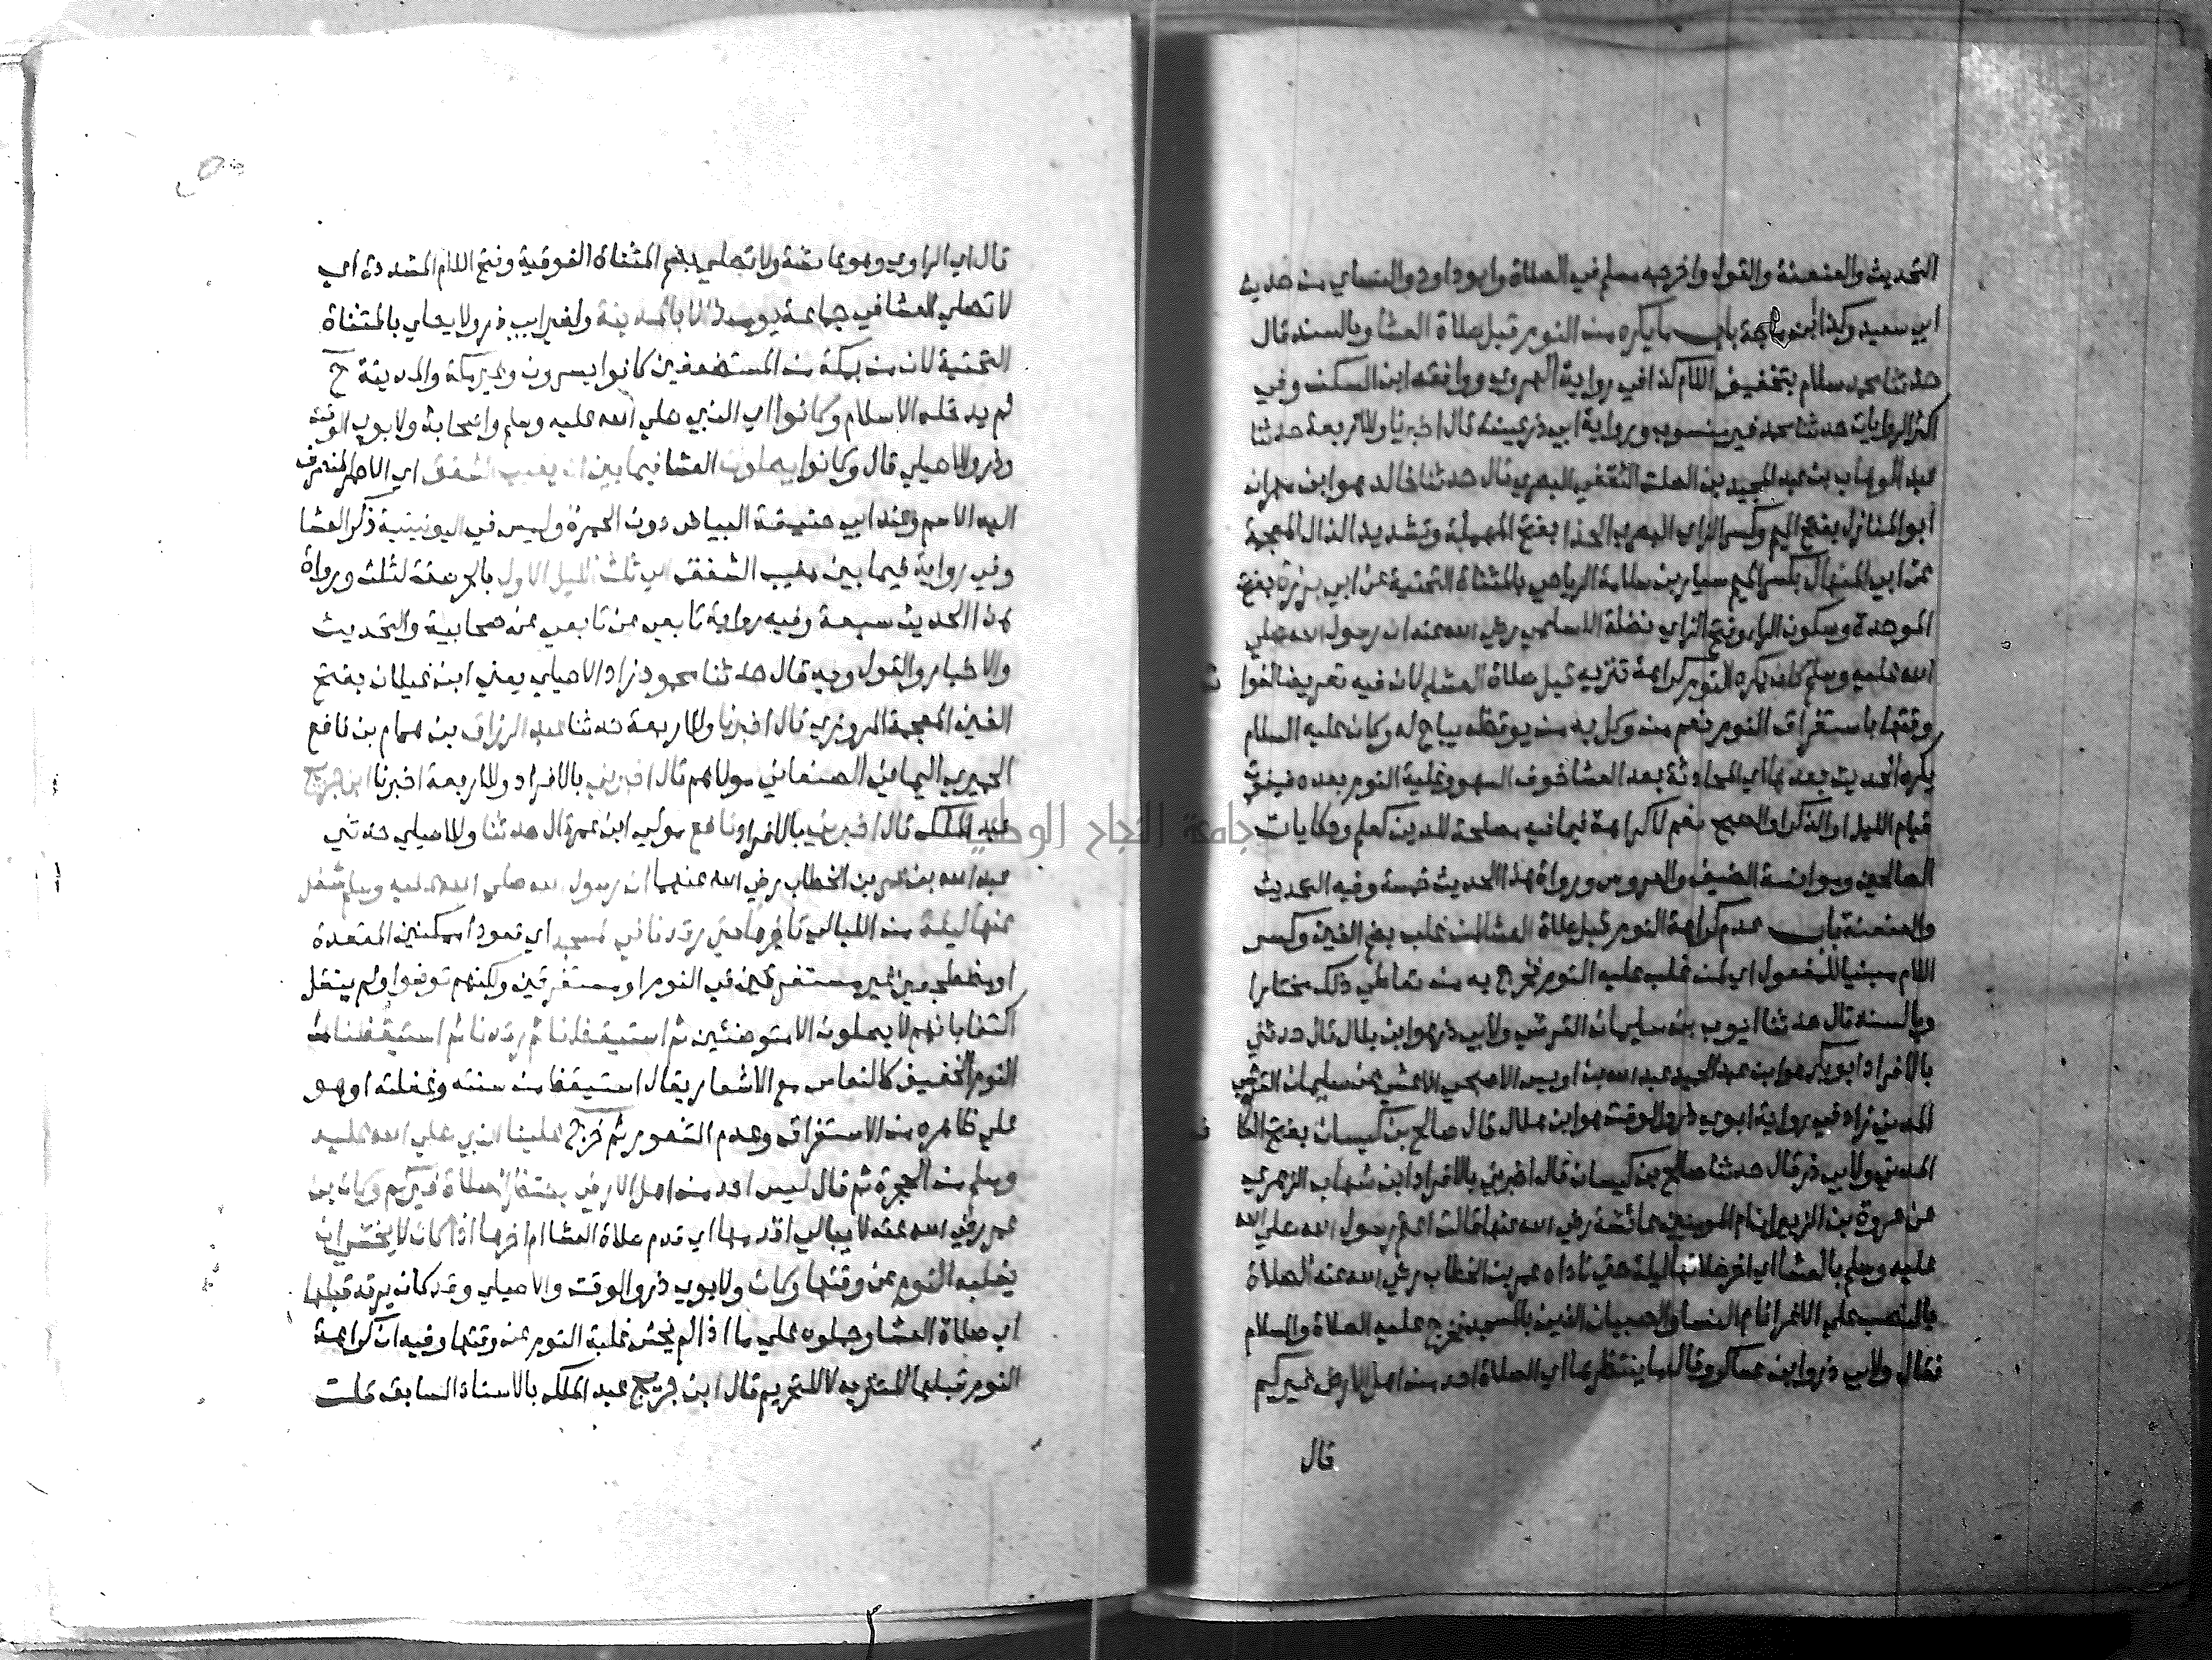 التحديث والعنعنة والقول واخرجه مسلم في الصلاة وابو داود والنساي من حديث
ابي سعيد وكذا ابن ماجة باب ما يكره من النوم قبل صلاة العشا وبالسند قال
حدثنا محمد سلام بتخفيف اللام كذا في رواية الهروي ووافقه ابن السكن وفي
اكثر الروايات حدثنا محمد غير منسوب ورواية ابي ذر بعينه قال اخبرنا وللاربعة حدثنا
عبد الوهاب بن عبد المجيد بن الصلت الثقفي البصري قال حدثنا خالد هو ابن مهران
ابو المنازل بفتح الميم وكسر الزاي البصري الحذا بفتح المهملة وتشديد الذال المعجمة
عن ابي المنهال بكسر الميم سيار بن سلامة الرياحي بالمثناة التحتية عن ابي برزة بفتح
الموحدة وسكون الرا وفتح الزاي نضلة الاسلمي رضي الله عنه ان رسول الله صلي
الله عليه وسلم كان يكره النوم كراهة تنزيه قبل صلاة العشا لان فيه تعريضا لفوا
وقتها باستغراق النوم نعم من وكل به من يوقظه يباح له وكان عليه السلام
يكره الحديث بعدها اي المحادثة بعد العشا خوف السهر وغلبة النوم بعده فيفوت
قيام الليل او الذكر او الصبح نعم لا كراهة فيما فيه مصلحة للدين كعلم وحكايات
الصالحين وموانسة الضيف والعروس ورواة هذا الحديث خمسة وفيه التحديث
والعنعنة باب عدم كراهة النوم قبل صلاة العشا لمن غلب بضم الغين وكسر
اللام مبنيا للمفعول اي لمن غلب عليه النوم فخرج به من تعاطي ذلك مختارا
وبالسند قال حدثنا ايوب بن سليمان القرشي ولابي ذر هو ابن بلال قال حدثني
بالافراد ابو بكر هو ابن عبد الحميد عبد الله بن اويس الاصبحي الاعشي عن سليمان القرشي
المدني زاد في رواية ابوي ذر والوقت هو ابن هلال قال صالح بن كيسان بفتح الكا
المدني ولابي ذر قال حدثنا صالح بن كيسان قال اخبرني بالافراد ابن شهاب الزهري
عن عروة بن الزبير ان ام المومنين عائشة رضي الله عنها قالت اعتم رسول الله صلي الله
عليه وسلم بالعشا اي اخر صلاتها ليلة حتي ناداه عمر بن الخطاب رضي الله عنه الصلاة
بالنصب علي الاغرا نام النسا والصبيان الذين بالمسجد فخرج عليه الصلاة والسلام
فقال ولابي ذر وابن عساكر وقال ما ينتظرها اي الصلاة احد من اهل الارض غيركم
قال
قال اي الراوي وهو عائشة ولا تصلي بضم المثناة الفوقية وفتح اللام المشددة اي
لا تصلي العشا في جماعة يومئذ الا بالمدينة ولغير ابي ذر ولا يصلي بالمثناة
التحتية لان من بمكة من المستضعفين كانوا يسرون وغير مكة والمدينة ح
لم يدخله الاسلام وكانوا اي النبي صلي الله عليه وسلم واصحابة ولابوي الوقت
وذر والاصيلي قال وكانوا يصلون العشا فيما بين ان يغيب الشفق اي الاحمر المنصرف
اليه الاسم وعند ابي حنيفة البياض دون الحمرة وليس في اليونينية ذكر العشا
وفي رواية فيما بين مغيب الشفق الي ثلث الليل الاول بالجر صفة لثلث ورواة
هذا الحديث سبعة وفيه رواية تابعي عن تابعي عن صحابية والتحديث
والاخبار والقول وبه قال حدثنا محمود زاد الاصيلي يعني ابن غيلان بفتح
الغين المعجمة المروزي قال اخبرنا وللاربعة حدثنا عبد الرزاق بن همام بن نافع
الحميري اليماني الصنعاني مولاهم قال اخبرني بالافراد وللاربعة اخبرنا ابن جريج
عبد الملك قال اخبرني بالافراد نافع مولي ابن عمر قال حدثنا وللاصيلي حدثني
عبد الله بن عمر بن الخطاب رضي الله عنهما ان رسول الله صلي الله عليه وسلم شغل
عنها ليلة من الليالي فاخرها حتي رقدنا في المسجد اي قعودا ممكنين المقعدة
او مضطجعين غير مستغرقين في النوم او مستغرقين ولكنهم توضوا ولم ينقل
اكتفا بانهم لا يصلون الا متوضئين ثم استيقظنا ثم رقدنا ثم استيقظنا من
النوم الخفيف كالنعاس مع الاشعار يقال استيقظ من سنته وغفلته او هو
علي ظاهره من الاستغراق وعدم الشعور ثم خرج علينا النبي صلي الله عليه
وسلم من الحجرة ثم قال ليس احد من اهل الارض ينتظر الصلاة غيركم وكان بن
عمر رضي الله عنه لا يبالي اقدمها اي قدم صلاة العشا ام اخرها اذا كان لا يخشي ان
يغلبه النوم عن وقتها وكان ولابوي ذر والوقت والاصيلي وقد كان يرقد قبلها
اي صلاة العشا وحملوه علي ما اذا لم يخش غلبة النوم عن وقتها وفيه ان كراهة
النوم قبلها للتنزيه لا للتحريم قال ابن جريج عبد الملك بالاسناد السابق قلت
جامعة النجاح الوطنية